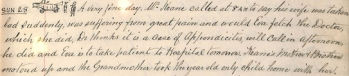 SUN 28 A very fine day. Mr. Keane called at 8 a.m. to say his wife was taken
bad suddenly, was suffering from great pain and would Eva fetch the Doctor,
which she did, Dr thinks it is a case of Appendicitis, will call in afternoon
he did and Eva is to take patient to Hospital tomorrow. Francis McKew & Brother
motored up and the Grandmother took the year old only child home with her.